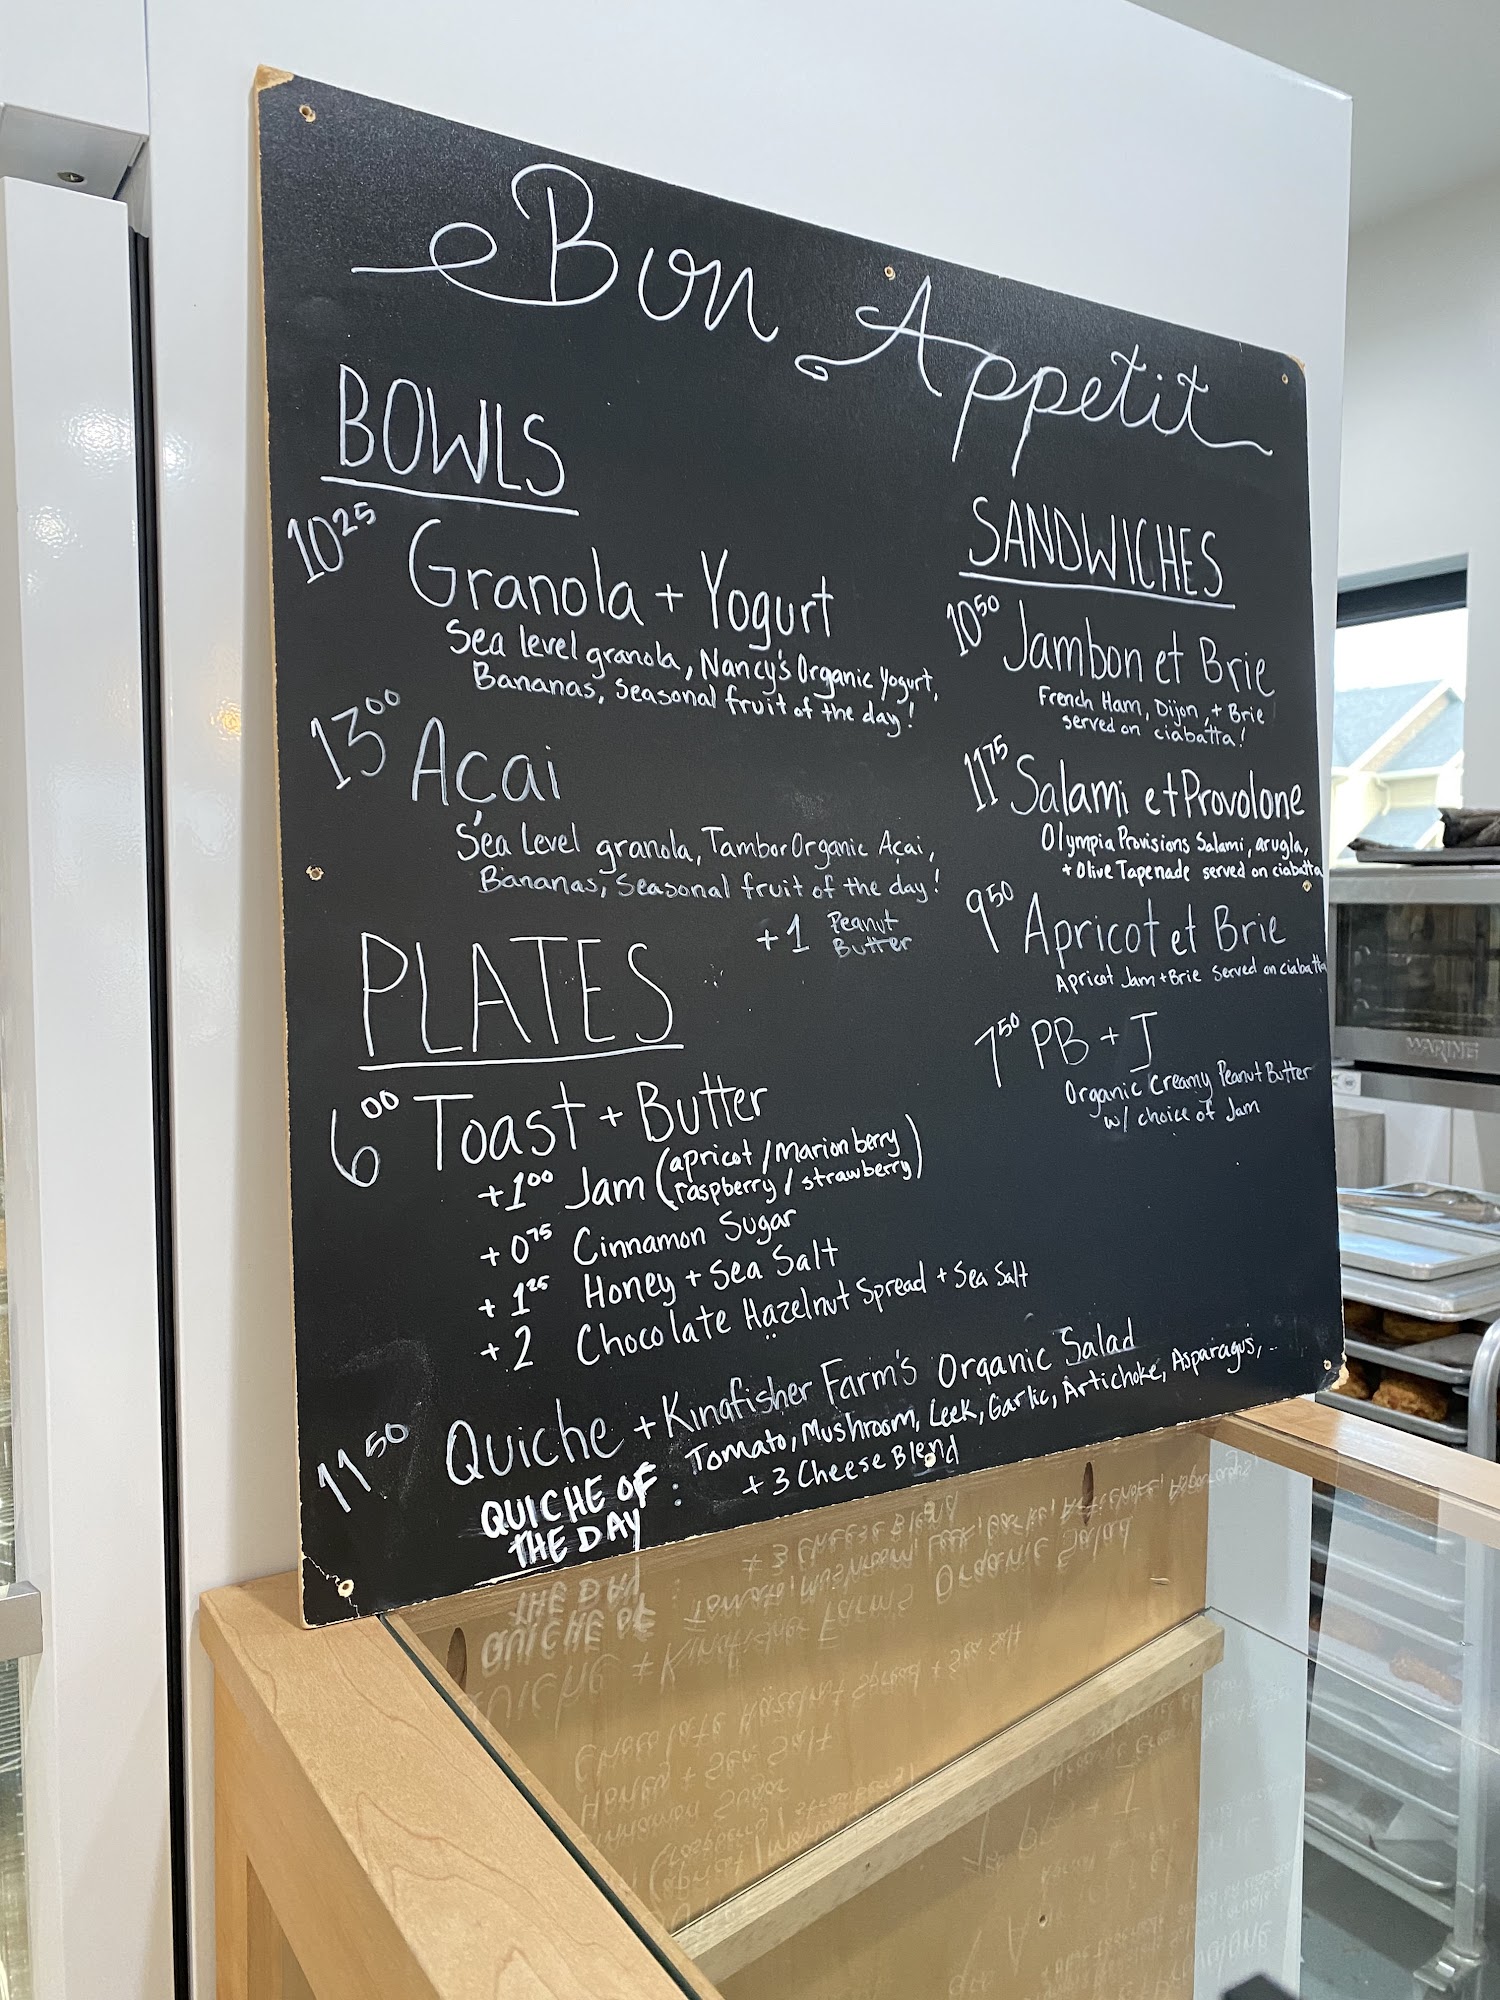 Bon Appetit
BOWLS
10²⁵ Granola + Yogurt
Sea level granola, Nancy's Organic Yogurt,
Bananas, Seasonal fruit of the day!
13⁰⁰ Açai
Sea Level granola, Tambor Organic Açai,
Bananas, Seasonal fruit of the day!
+1 Peanut
Butter
PLATES
6⁰⁰ Toast + Butter
+1⁰⁰ Jam (apricot / marionberry
raspberry / strawberry)
+0⁷⁵ Cinnamon Sugar
+1²⁵ Honey + Sea Salt
+2 Chocolate Hazelnut Spread + Sea Salt
11⁵⁰ Quiche + Kingfisher Farm's Organic Salad
QUICHE OF
THE DAY :
Tomato, Mushroom, Leek, Garlic, Artichoke, Asparagus,..
+ 3 Cheese Blend
SANDWICHES
10⁵⁰ Jambon et Brie
French Ham, Dijon, + Brie
served on ciabatta!
11⁷⁵ Salami et Provolone
Olympia Provisions Salami, arugla,
+ Olive Tapenade served on ciabatta
9⁵⁰ Apricot et Brie
Apricot Jam + Brie served on ciabatta
7⁵⁰ PB + J
Organic Creamy Peanut Butter
w/ choice of Jam
WARING